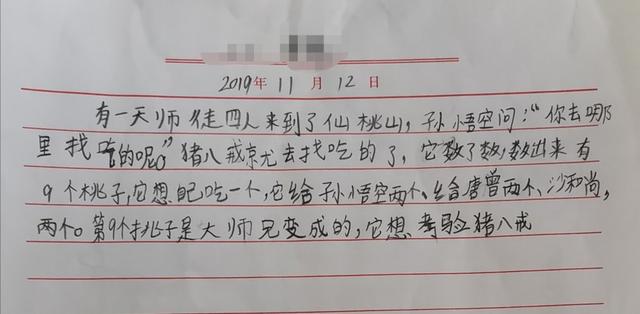 2019年 11 月 12 日
有一天师徒四人来到了仙桃山，孙悟空问：“你去哪
里找吃的呢”猪八戒就去找吃的了，它数了数，数出来有
9个桃子，它想自己吃一个，它给孙悟空两个、给唐曾两个、沙和尚，
两个。第9个桃子是大师兄变成的，它想考验猪八戒